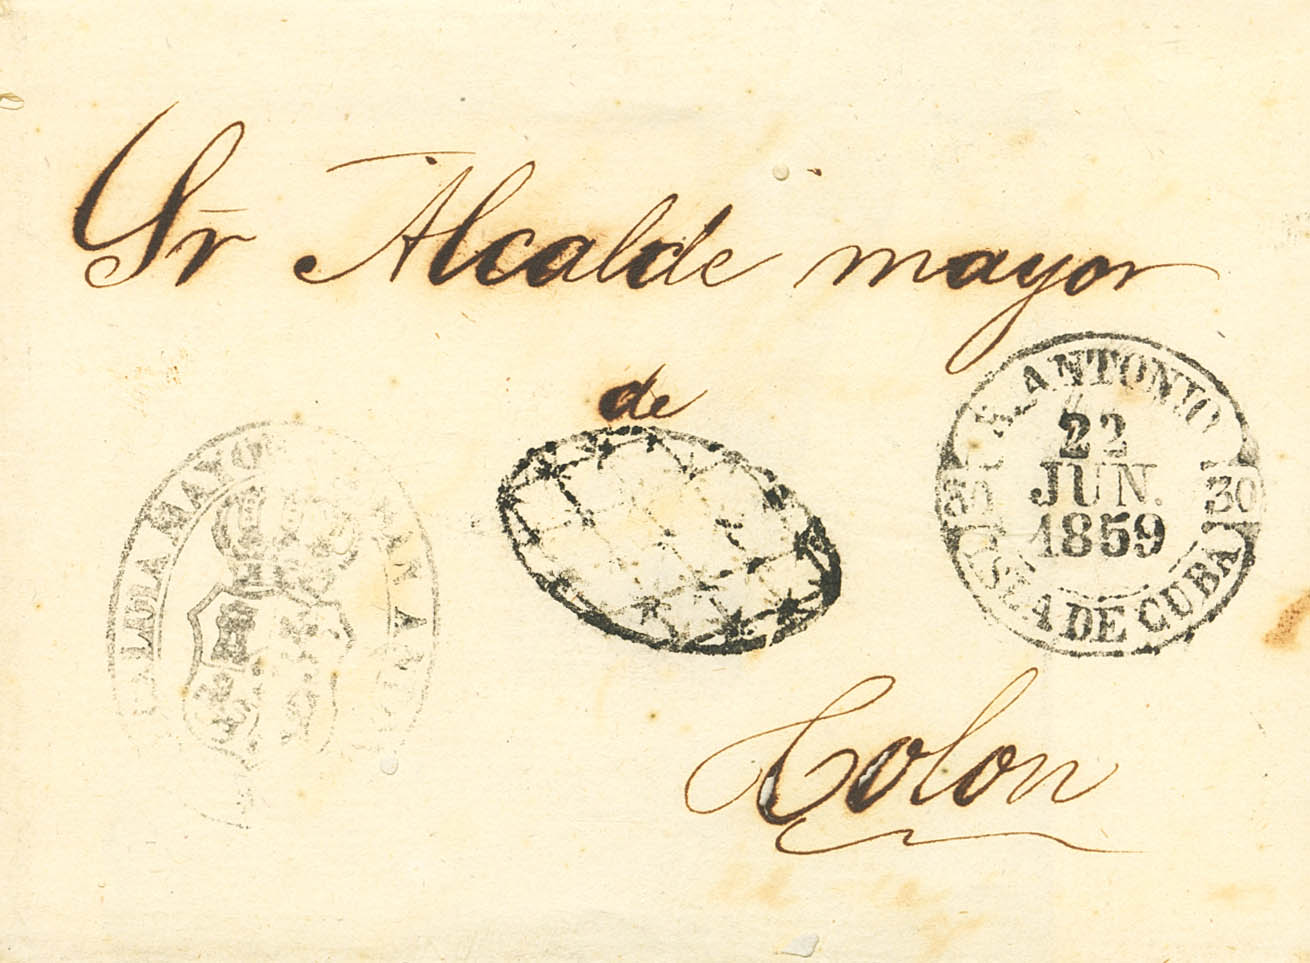 Sr Alcalde mayor
de
Colon
S. ANTONIO
22
JUN.
1859
30
ISLA DE CUBA
MAYOR
SAN